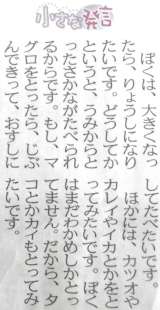 小さな発言
ぼくは、大きくなっ
たら、りょうしになり
たいです。どうしてか
というと、うみからと
ったさかながたべられ
るからです。もし、マ
グロをとったら、じぶ
んできって、おすしに
してたべたいです。
ほかには、カツオや
カレイやイカとかをと
ってみたいです。ぼく
はまだわかめしかとっ
てません。だから、タ
コとかカイもとってみ
たいです。